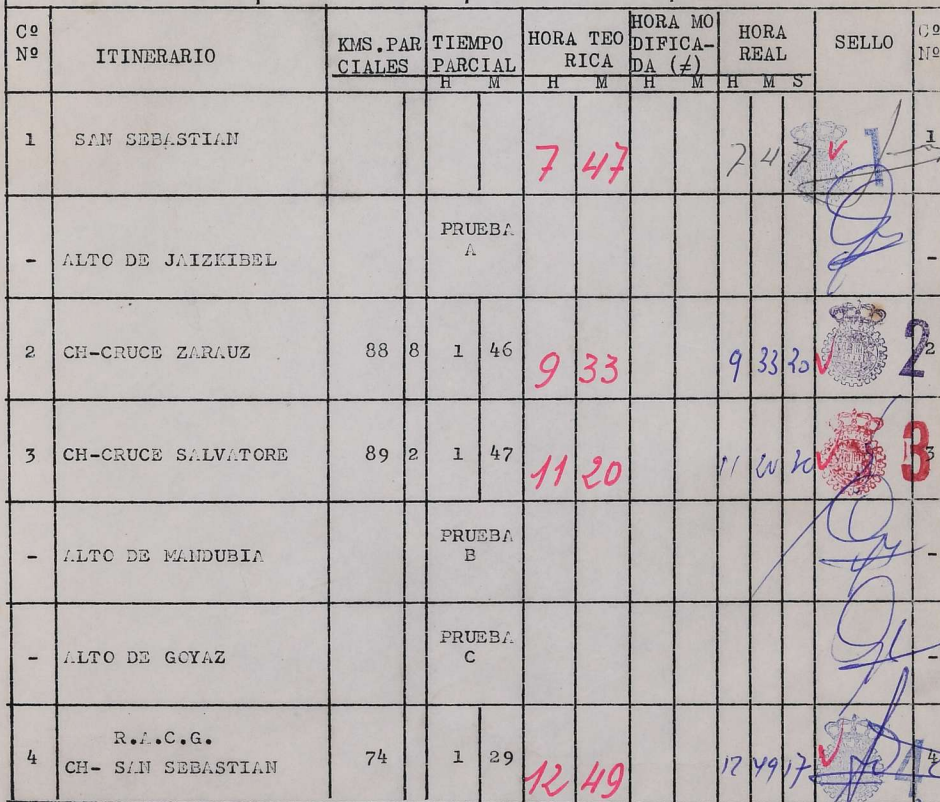 Cº Nº ITINERARIO KMS.PARCIALES TIEMPO PARCIAL HORA TEORICA HORA MODIFICADA (≠) HORA REAL SELLO Cº Nº
H M H M H M H M S
1 SAN SEBASTIAN 7 47 7 47 1 1
- ALTO DE JAIZKIBEL PRUEBA A -
2 CH-CRUCE ZARAUZ 88 8 1 46 9 33 9 33 20 2 2
3 CH-CRUCE SALVATORE 89 2 1 47 11 20 11 20 20 3 3
- ALTO DE MANDUBIA PRUEBA B -
- ALTO DE GOYAZ PRUEBA C -
4 R.A.C.G. CH- SAN SEBASTIAN 74 1 29 12 49 12 49 17 4 4